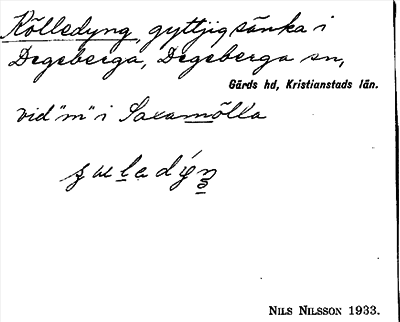 Kölledyng, gyttjig sänka i
Degeberga, Degeberga sn,
Gärds hd, Kristianstads län.
vid "m" i Saxamölla
NILS NILSSON 1933.